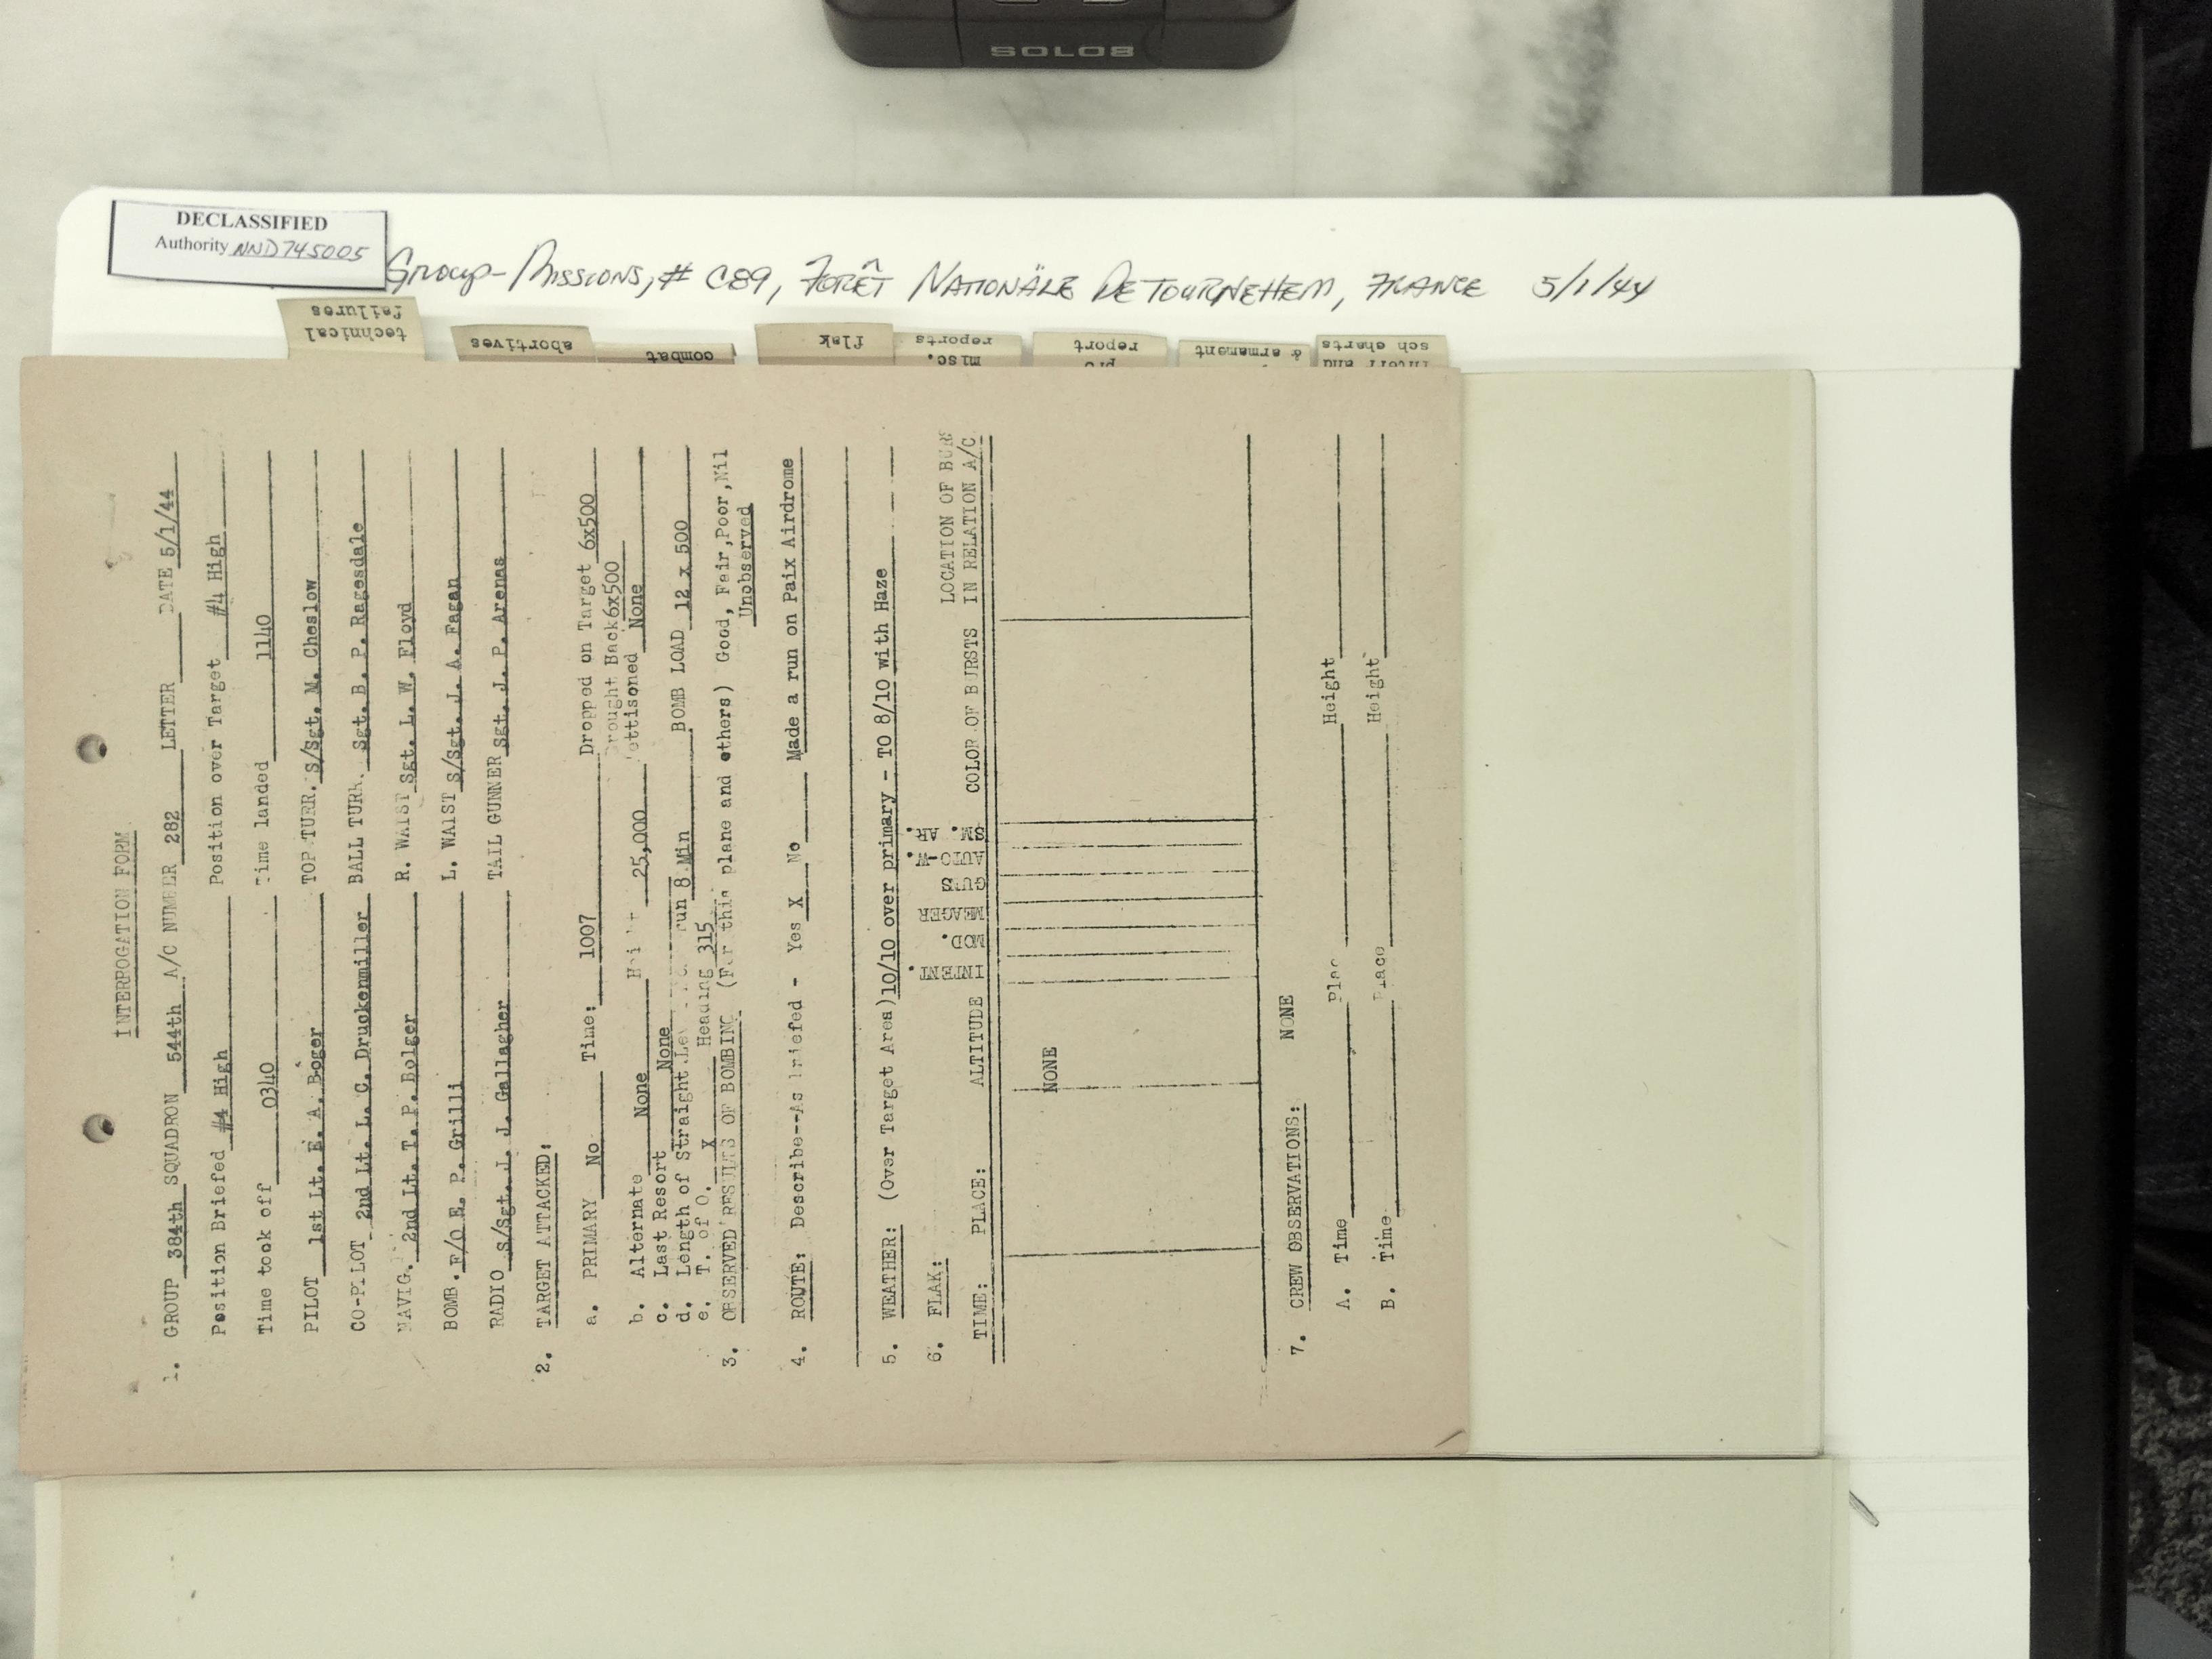 SOLO8
DECLASSIFIED
Authority NND745005
Group-Missions, # C89, Forêt Nationäle De Tournehem, France 5/1/44
technical
failures
abortives
combat
flak
misc.
reports
report
& armament
sch charts
INTERROGATION FORM
1. GROUP 384th SQUADRON 544th A/C NUMBER 282 LETTER DATE 5/1/44
Position Briefed #4 High Position over Target #4 High
Time took off 0340 Time landed 1140
PILOT 1st Lt. E. A. Boger TOP TURR. S/Sgt. M. Cheslow
CO-PILOT 2nd Lt. L. C. Druckemiller BALL TURR. Sgt. B. P. Ragesdale
NAVIG. 2nd Lt. T. P. Bolger R. WAIST Sgt. L. W. Floyd
BOMB. F/O E. P. Grilli L. WAIST S/Sgt. J. A. Fagan
RADIO S/Sgt. J. J. Gallagher TAIL GUNNER Sgt. J. P. Arenas
2. TARGET ATTACKED:
a. PRIMARY No Time: 1007 Dropped on Target 6x500
Brought Back 6x500
b. Alternate None Height 25,000 Jettisoned None
c. Last Resort None
d. Length of Straight Level run 8 Min BOMB LOAD 12 x 500
e. T. of O. X Heading 315
3. OBSERVED RESULTS OF BOMBING (For this plane and others) Good, Fair, Poor, Nil
Unobserved
4. ROUTE: Describe--As briefed - Yes X No Made a run on Paix Airdrome
5. WEATHER: (Over Target Area) 10/10 over primary - TO 8/10 with Haze
6. FLAK:
TIME: PLACE: ALTITUDE INTENT. MOD. MEAGER GUNS AUTO-W. SM. AR. COLOR OF BURSTS LOCATION OF BURS
IN RELATION A/C
NONE
7. CREW OBSERVATIONS: NONE
A. Time Place Height
B. Time Place Height